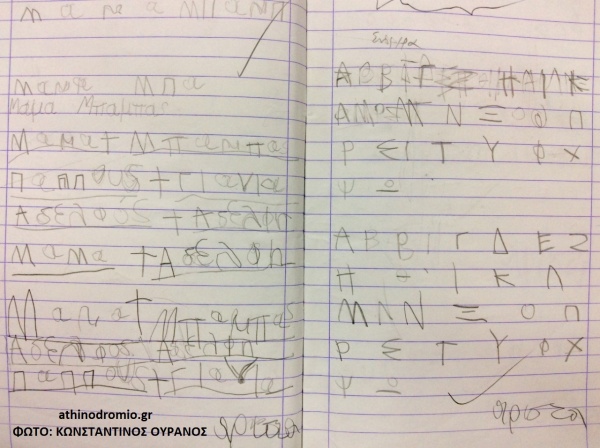 μ α μ α μπαμπ
μαμα μπα
Μαμα Μπαμπας
Μαμα + Μπαμπας
παππους + Γιαγια
Αδελφος + Αδελφη
Μαμα + Αδελφη
Μαμα + Μπαμπας
Αδελφος Αδελφη
παππους + Γιαγια
αριστα
Α Β
Ν Ξ Ο Π
Ρ Σ Ι Τ Υ Φ Χ
Ψ Ω
Α Β Β Ι Γ Δ Ε Ζ
Η Θ Ι Κ Λ
Μ Λ Ν Ξ Ο Π
Ρ Σ Τ Υ Φ Χ
Ψ Ω
αριστα
athinodromio.gr
ΦΩΤΟ: ΚΩΝΣΤΑΝΤΙΝΟΣ ΟΥΡΑΝΟΣ